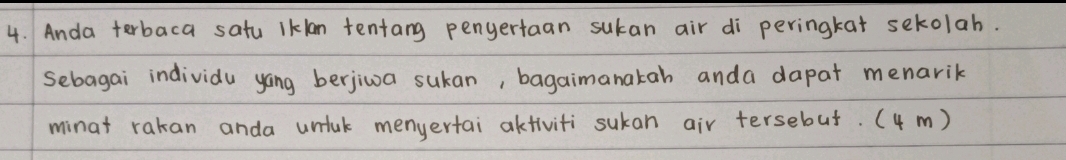 4. Anda terbaca satu iklan tentang penyertaan sukan air di peringkat sekolah.
Sebagai individu yang berjiwa sukan, bagaimanakah anda dapat menarik
minat rakan anda untuk menyertai aktiviti sukan air tersebut. (4 m)